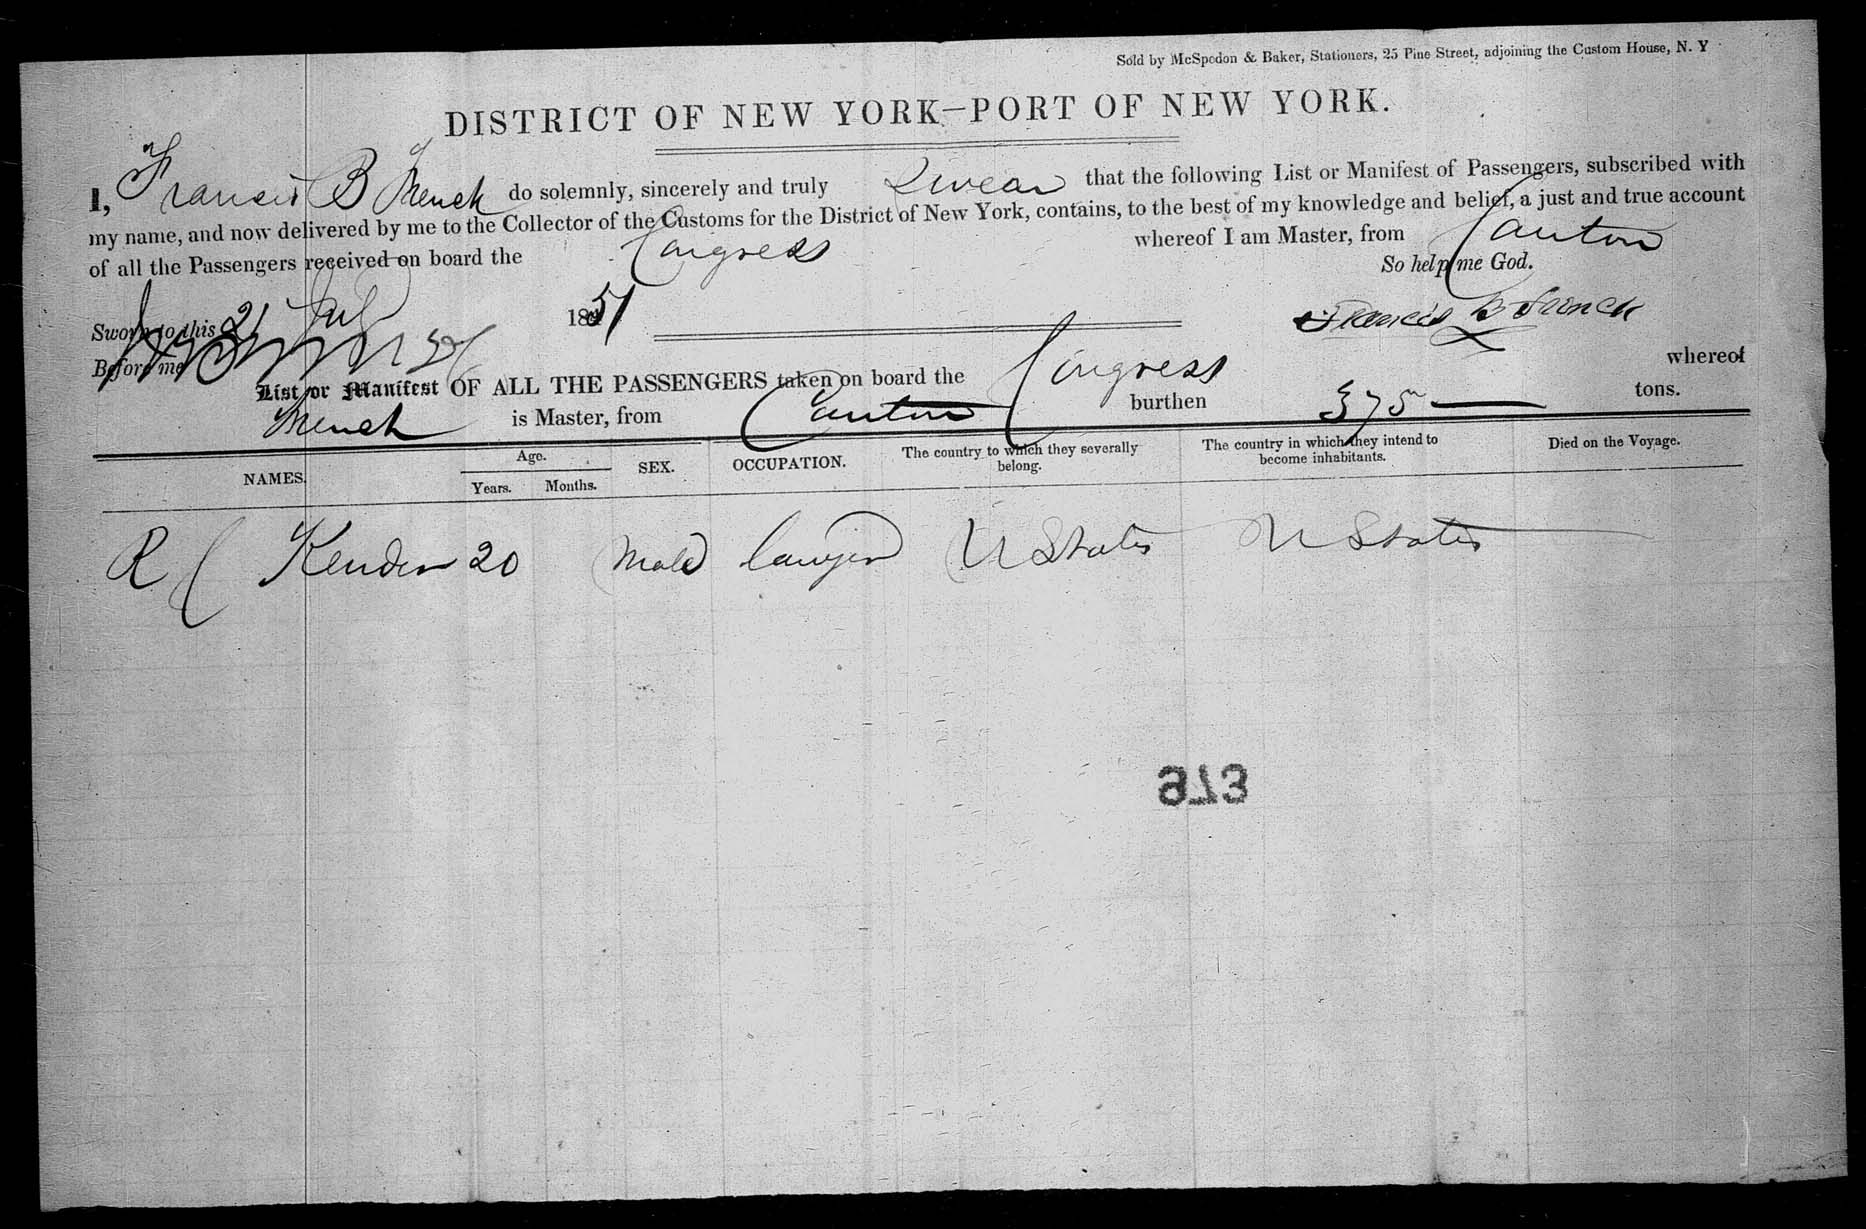 Sold by McSpedon & Baker, Stationers, 25 Pine Street, adjoining the Custom House, N. Y
DISTRICT OF NEW YORK—PORT OF NEW YORK.
I, Francis B French do solemnly, sincerely and truly Swear that the following List or Manifest of Passengers, subscribed with
my name, and now delivered by me to the Collector of the Customs for the District of New York, contains, to the best of my knowledge and belief, a just and true account
of all the Passengers received on board the Congress whereof I am Master, from Canton
So help me God.
Sworn to this 21 July 1851
Francis B French
Before me
List or Manifest OF ALL THE PASSENGERS taken on board the Congress whereof
French is Master, from Canton burthen 375 tons.
NAMES. Age. Years. Months. SEX. OCCUPATION. The country to which they severally belong. The country in which they intend to become inhabitants. Died on the Voyage.
R 20 Male lawyer U States U States
973